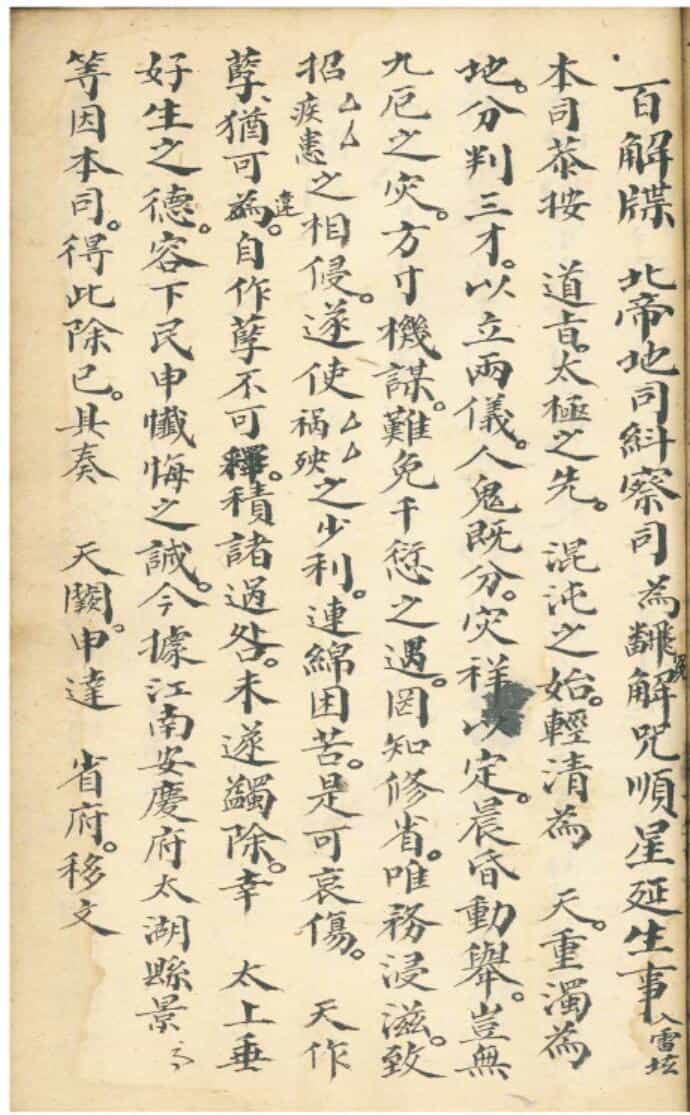 百解牒　北帝地司糾察司為飜解咒順星延生事入雷坛
本司恭按　道旨。太極之先。混沌之始。輕清為　天。重濁為
地。分判三才。以立兩儀。人鬼既分。灾祥以定。晨昏動舉。豈無
九厄之灾。方寸機謀。難免千愆之遇。罔知修省。唯務浸滋。致
招厶厶疾患之相侵。遂使厶厶祸殃之少利。連綿困苦。是可哀傷。天作
孽、猶可為違。自作孽不可釋。積諸過咎。未遂蠲除。幸　太上垂
好生之德。容下民申懺悔之誠。今據江南安慶府太湖縣景
等因本司。得此除已。具奏　天闕。申達　省府。移文